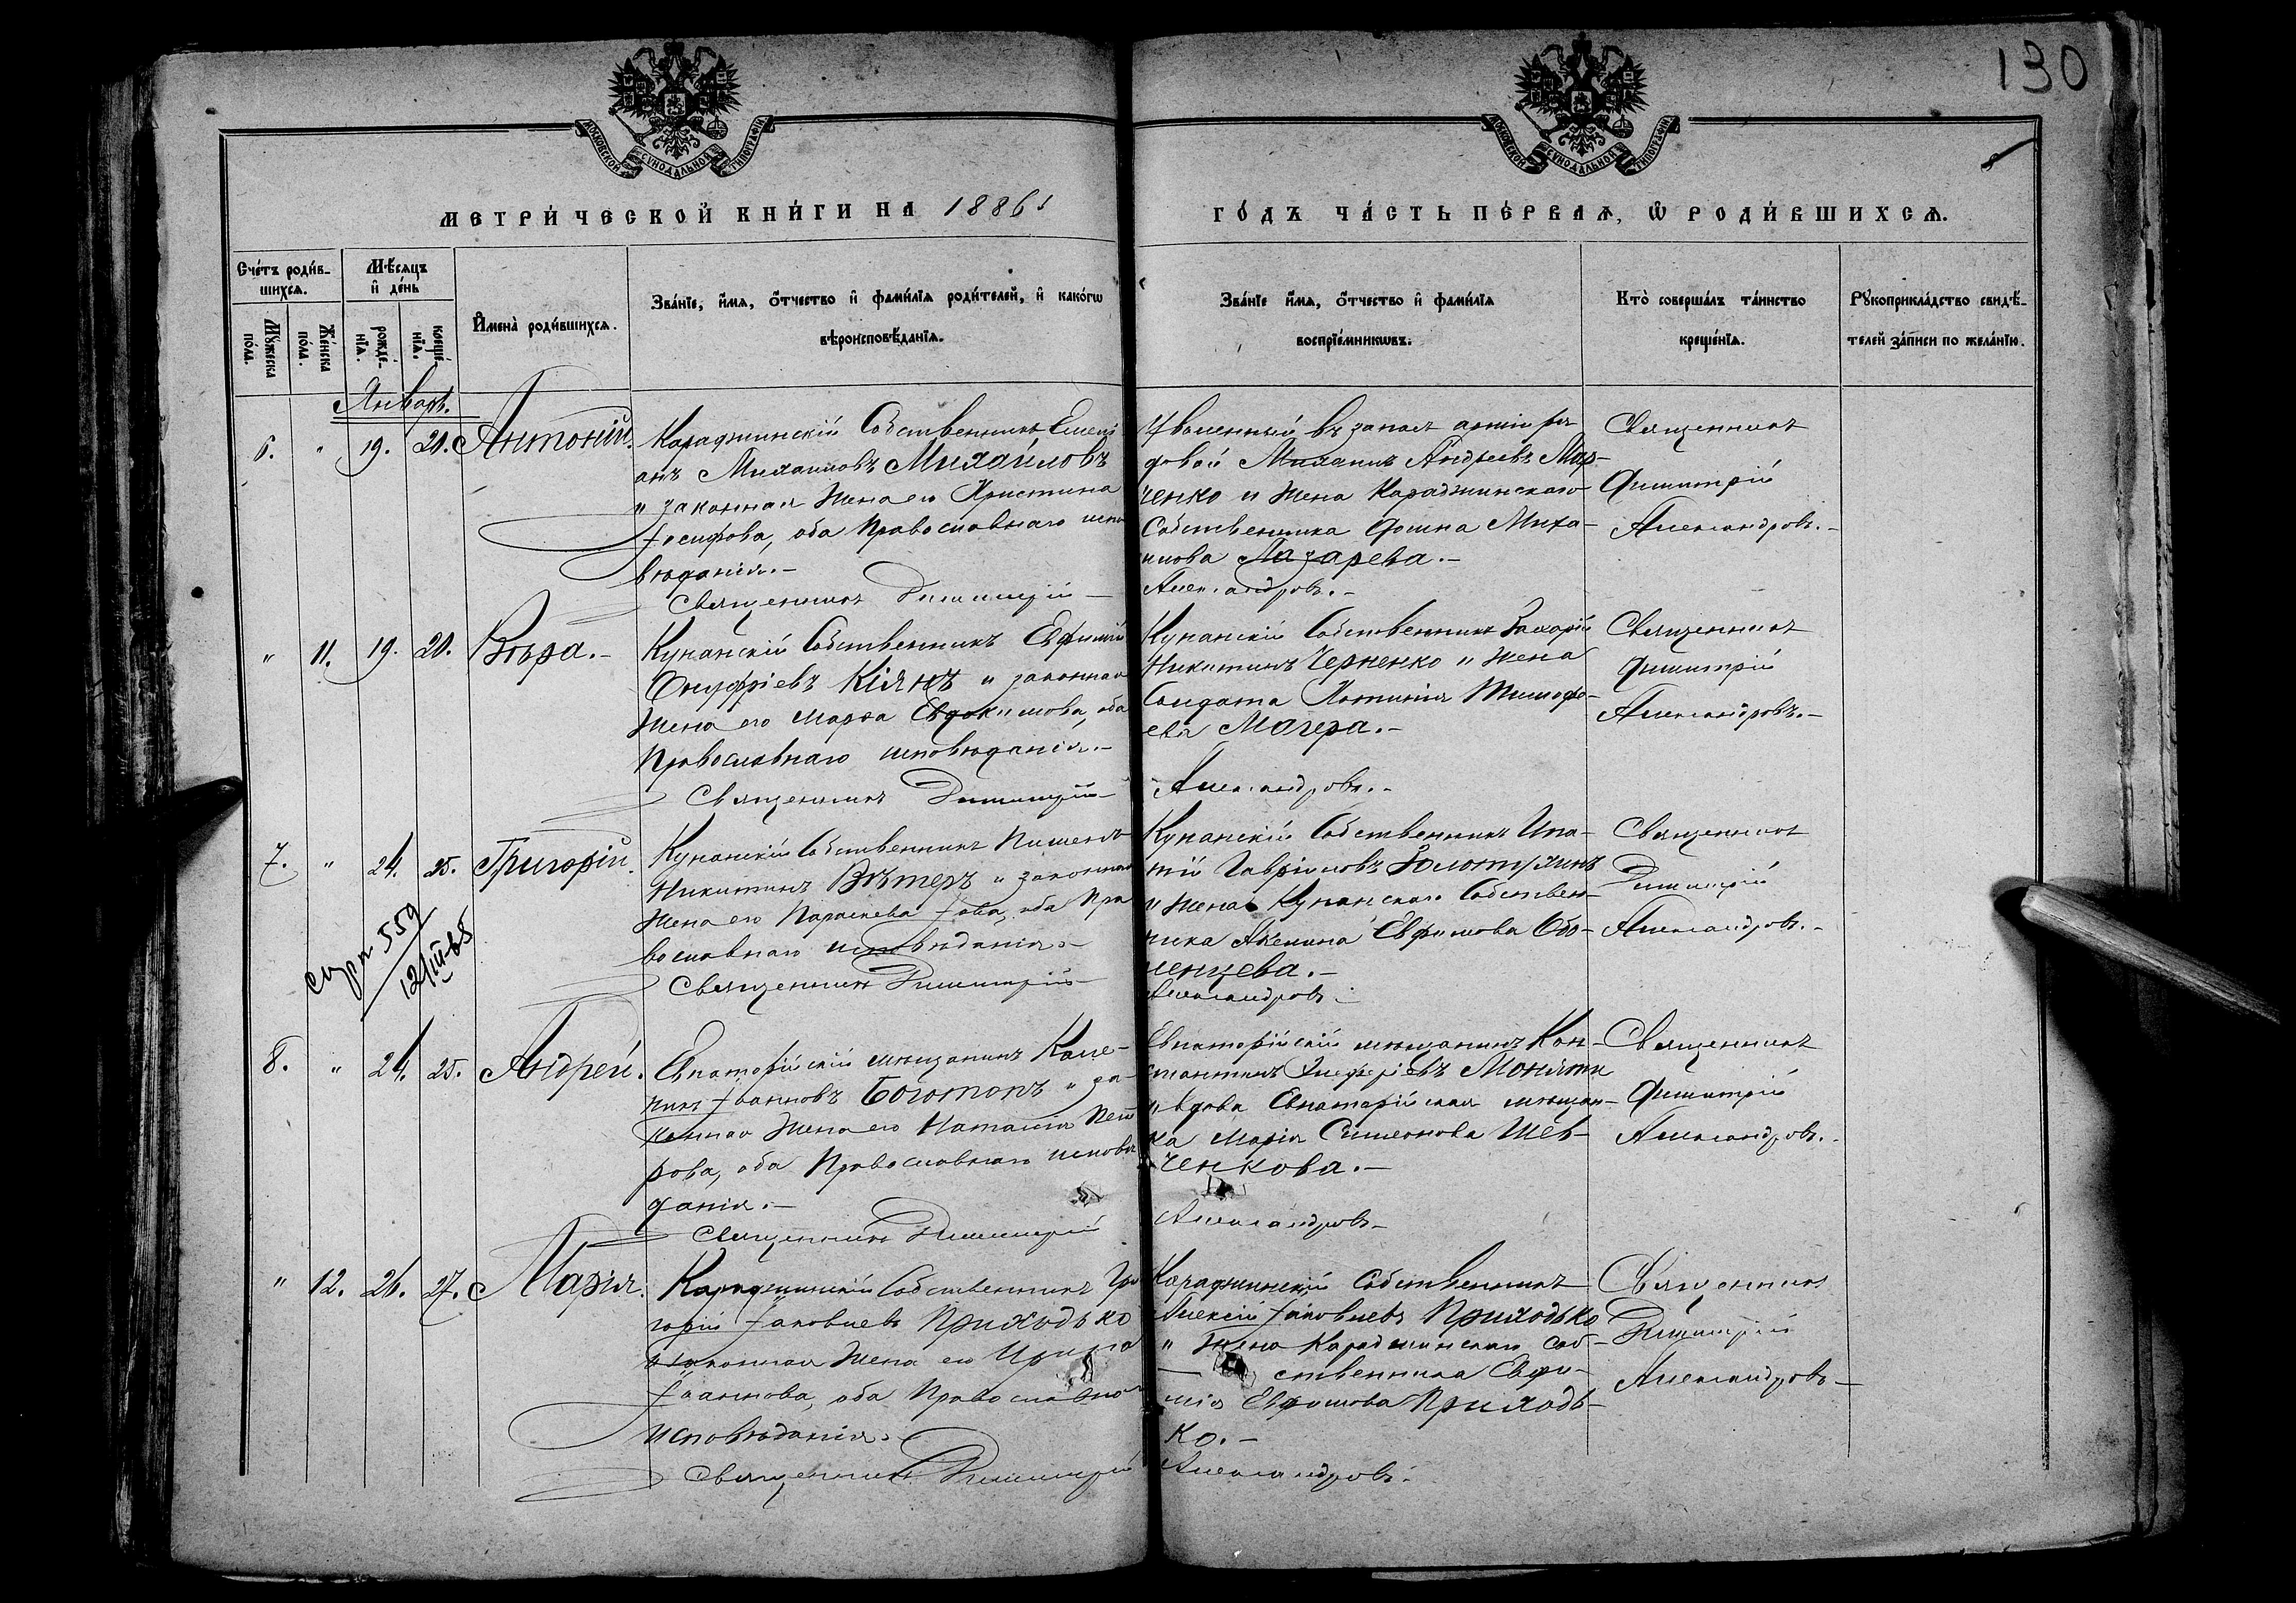 130
МОСКОВСКОЙ СУНОДАЛЬНОЙ ТИПОГРАФІИ
МОСКОВСКОЙ СУНОДАЛЬНОЙ ТИПОГРАФІИ
МЕТРИ́ЧЕСКОЙ КНИ́ГИ НА 1886
ГО́ДЪ ЧА́СТЬ ПЕ́РВАѦ, Ѽ РОДИ́ВШИХСѦ.
Сче́тъ роди́в-
шихсѧ.
Мꙋ́жеска
по́ла.
Же́нска
по́ла.
Мѣ́сѧцъ
и҆ де́нь
рожде́-
нїѧ.
креще́-
нїѧ.
И҆мена̀ роди́вшихсѧ.
Зва́нїе, и҆́мѧ, ѻ҆́тчество и҆ фами́лїѧ роди́телей, и҆ како́гѡ
вѣроисповѣ́данїѧ.
Зва́нїе и҆́мѧ, ѻ҆́тчество и҆ фами́лїѧ
воспрїе́мникѡвъ.
Кто̀ соверша́лъ та́инство
креще́нїѧ.
Рꙋкоприкла́дство свидѣ́-
телей за́писи по жела́нїю.
Январь.
6. " 19. 20. Антоній.
Караджинскій Собственникъ Емели
анъ Михаиловъ Михайловъ
и законная жена его Христина
Іосифова, оба Православнаго испо
вѣданія.-
Священникъ Димитрій
Уволенный въ запасъ арміи ря
довой Михаилъ Андреевъ Мар-
ченко и жена Караджинскаго
Собственника Домна Миха-
илова Лазарева.-
Александровъ.-
Священникъ
Димитрій
Александровъ.-
" 11. 19. 20. Вѣра.-
Кунанскій Собственникъ Евфимій
Онуфріевъ Кіянъ и законная
жена его Марѳа Евдокимова, оба
Православнаго исповѣданія.-
Священникъ Димитрій
Кунанскій Собственникъ Захарій
Никитинъ Черненко и жена
Солдата Тимофе-
ева Могера.-
Александровъ.-
Священникъ
Димитрій
Александровъ.-
7. " 24. 25. Григорій.
Кунанскій Собственникъ
Никитинъ Вѣтеръ и законная
жена его Параскева оба Пра
вославнаго исповѣданія.-
Священникъ Димитрій
Кунанскій Собственникъ Ипа-
тій Гавріиловъ Золотухинъ
и жена Кунанскаго Собствен-
ника Акелина Евфимова Обо-
ленцева.-
Александровъ.-
Священникъ
Димитрій
Александровъ.-
559
8. " 24. 25. Андрей.
Евпаторійскій мѣщанинъ Кале-
никъ Іоанновъ Боготопъ и за-
конная жена его Наталія Пет
рова, оба Православнаго исповѣ
данія.-
Священникъ Димитрій
Евпаторійскій мѣщанинъ Кон-
стантинъ
и вдова Евпаторійская мѣщан-
ка Марія Симеонова Шев-
ченкова.-
Александровъ.-
Священникъ
Димитрій
Александровъ.-
" 12. 26. 27. Марія.
Караджинскій Собственникъ Гри
горій Іаковлевъ Приходько
и законная жена его Ирина
Іоаннова, оба Православнаго
исповѣданія.-
Священникъ Димитрій
Караджинскій Собственникъ
Алексій Іаковлевъ Приходько
и жена Караджинскаго соб-
ственника Евфи-
мія Евфимова Приходь-
ко.-
Александровъ.-
Священникъ
Димитрій
Александровъ-